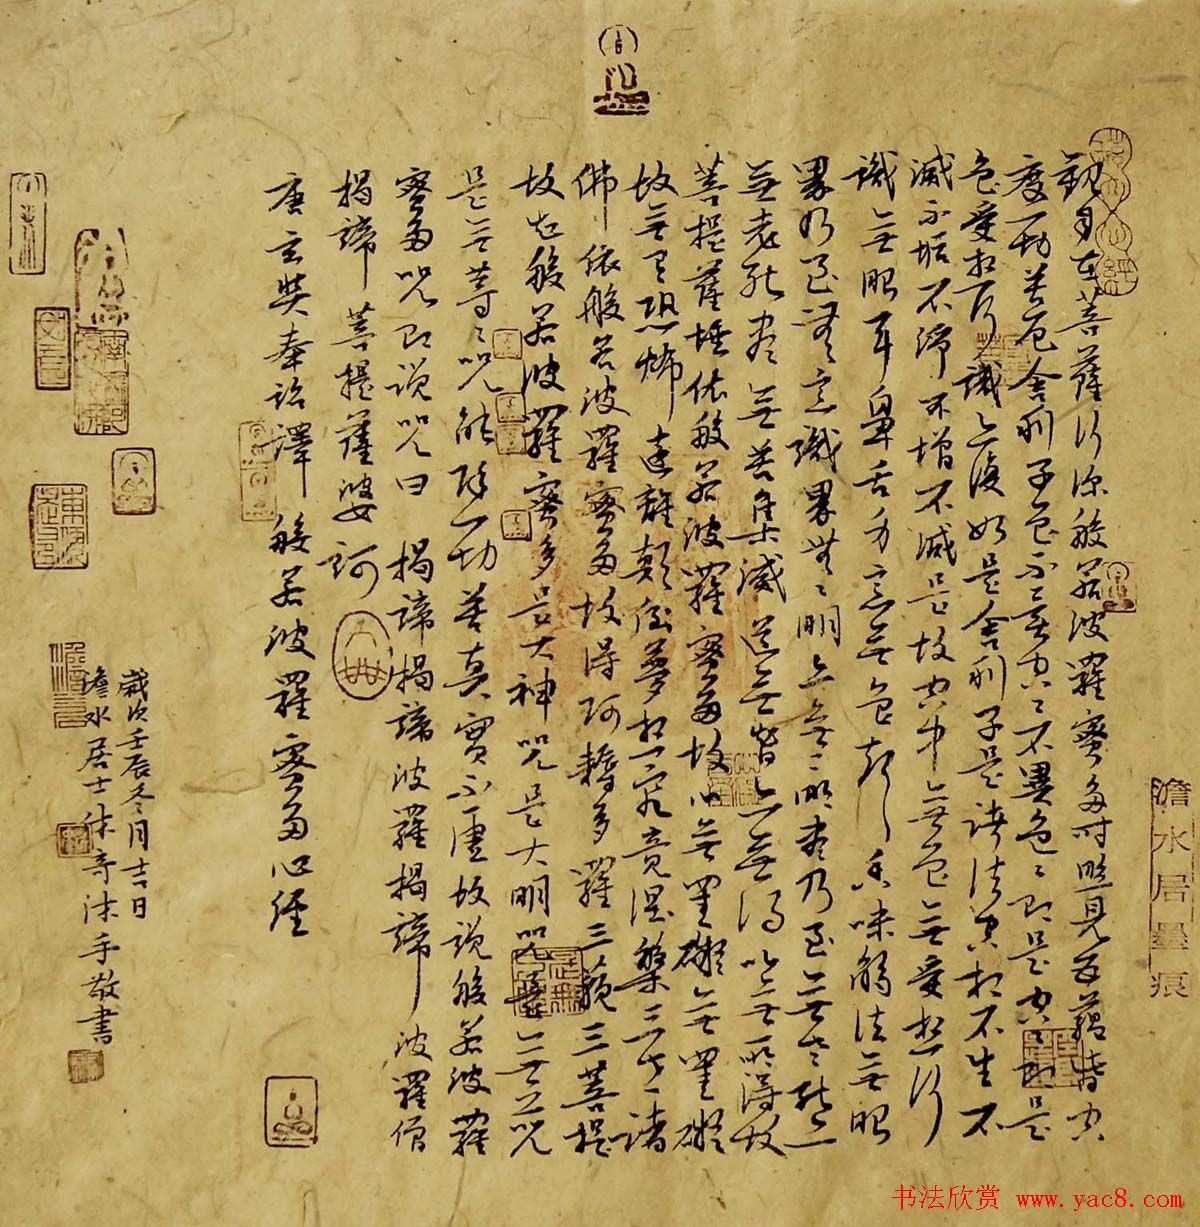 觀自在菩薩行深般若波羅蜜多時照見五蘊皆空
度一切苦厄舍利子色不異空〻不異色〻即是空〻即是
色受想行識亦復如是舍利子是諸法空相不生不
滅不垢不淨不增不減是故空中無色無受想行
識無眼耳鼻舌身意無色聲香味觸法無眼
界乃至無意識界無〻明亦無〻明盡乃至無老死亦
無老死盡無苦集滅道無智亦無得以無所得故
菩提薩埵依般若波羅蜜多故心無罣礙無罣礙
故無有恐怖遠離顛倒夢想究竟涅槃三世諸
佛依般若波羅蜜多故得阿耨多羅三藐三菩提
故知般若波羅蜜多是大神咒是大明咒是無上咒
是無等〻咒能除一切苦真實不虛故說般若波羅
蜜多咒即說咒曰 揭諦揭諦波羅揭諦 波羅僧
揭諦 菩提薩婆訶
唐玄奘奉詔譯 般若波羅蜜多心經
歲次壬辰冬月吉日
澹水居士 沐手敬書
澹水居墨痕
书法欣赏 www.yac8.com